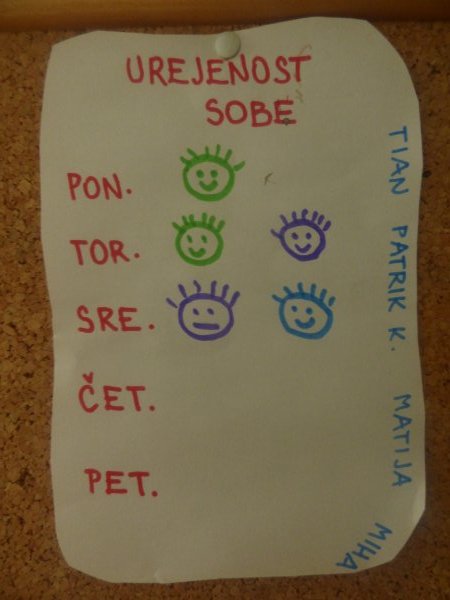 UREJENOST
SOBE
PON.
TOR.
SRE.
ČET.
PET.
TIAN PATRIK K. MATIJA MIHA